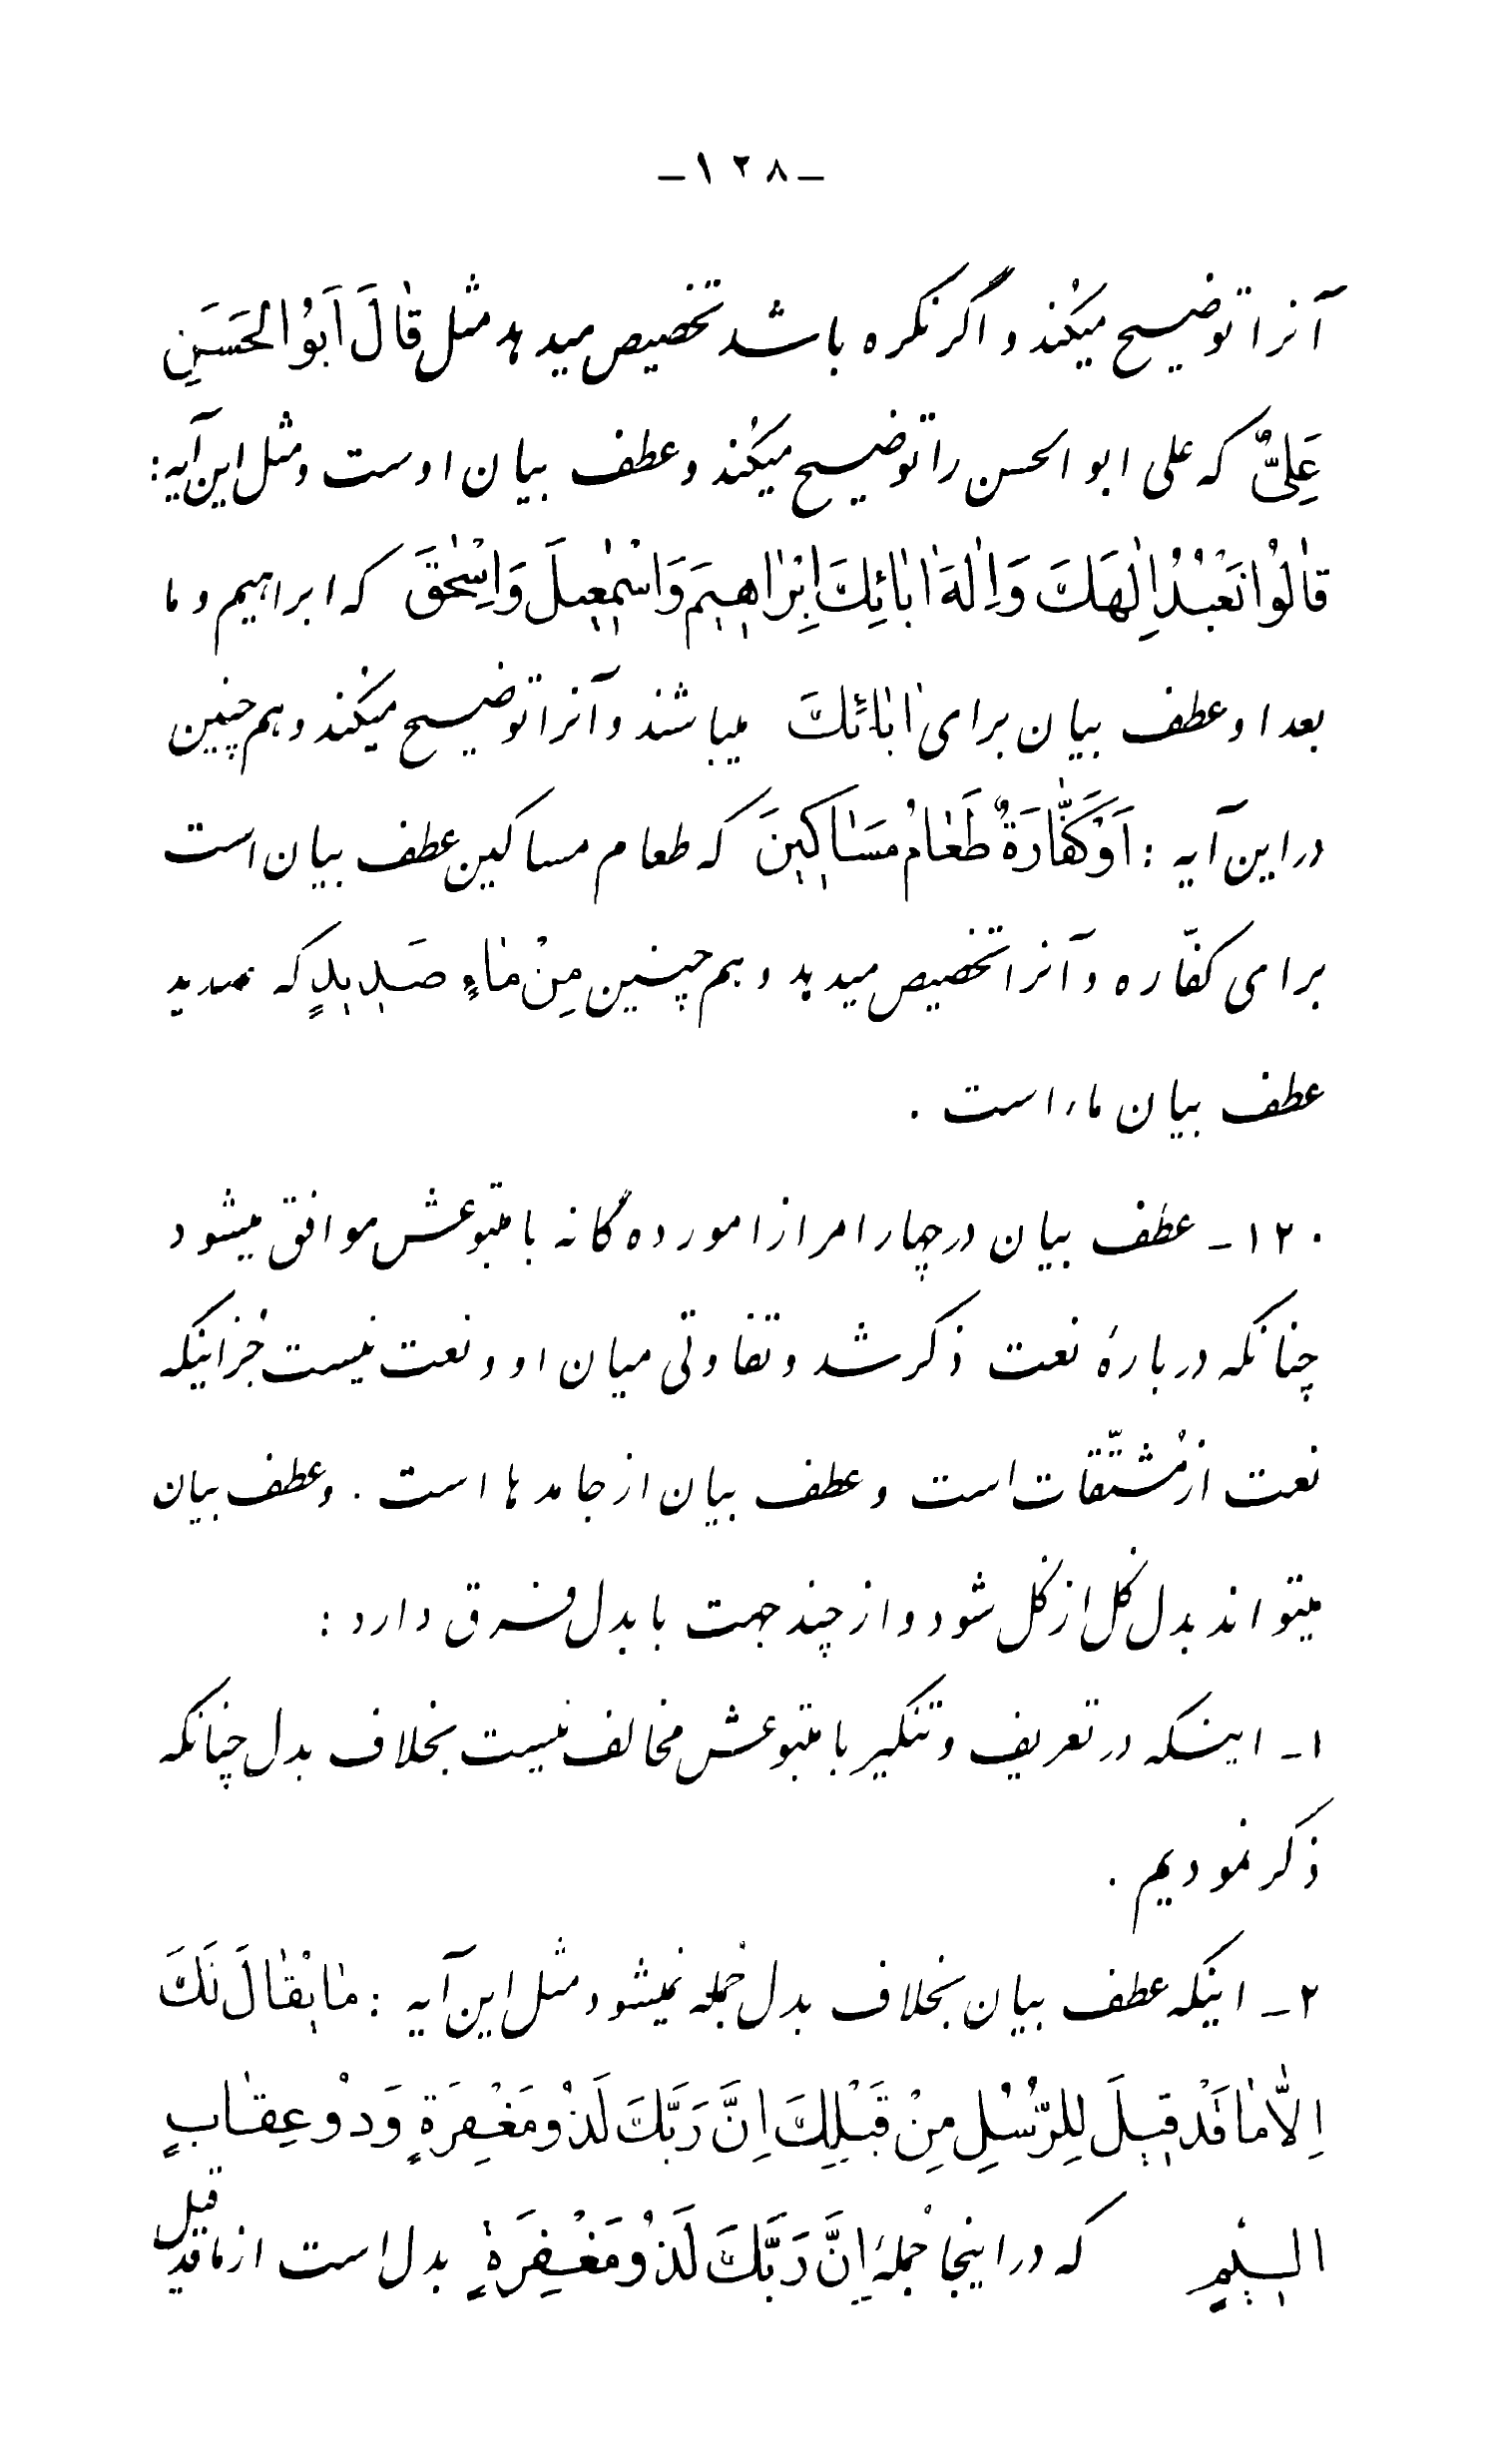 -۱۲۸-
آنرا توضیح میکند و اگر نکره باشد تخصیص میدهد مثل قٰالَ اَبُو الحَسَنِ
عَلِیٌّ که علی ابو الحسن را توضیح میکند و عطف بیان اوست و مثل این آیه:
قٰالُوْا نَعْبُدُ اِلٰهَكَ وَ اِلٰهَ اٰبٰائِكَ اِبْرٰاهِیمَ وَ اسْمٰعِیلَ وَ اِسْحٰقَ که ابراهیم و ما
بعد او عطف بیان برای اٰبٰائِكَ میباشند و آنرا توضیح میکند و هم چنین
در این آیه : اَوْ كَفّٰارَةٌ طَعٰامُ مَسٰاكِینَ که طعام مساکین عطف بیان است
برای کفّاره و آنرا تخصیص میدهد و هم چنین مِنْ مٰاءٍ صَدِیدٍ که صدید
عطف بیان ماء است .
۱۲۰- عطف بیان در چهار امر از امور ده گانه با متبوعش موافق میشود
چنانکه دربارهٔ نعت ذکر شد و تفاوتی میان او و نعت نیست جُز اینکه
نعت از مُشتّقات است و عطف بیان از جامدها است . و عطف بیان
میتواند بدل کُل از کُل شود و از چند جهت با بدل فرق دارد :
۱- اینکه در تعریف و تنکیر با متبوعش مخالف نیست بخلاف بدل چنانکه
ذکر نمودیم .
۲- اینکه عطف بیان بخلاف بدل جُمله نمیشود مثل این آیه : مٰا یُقٰالُ لَكَ
اِلّٰا مٰا قَدْ قِیلَ لِلرُّسُلِ مِنْ قَبْلِكَ اِنَّ رَبَّكَ لَذُو مَغْفِرَةٍ وَ ذُوْ عِقٰابٍ
اَلِیمٍ که در اینجا جُملهٔ اِنَّ رَبَّكَ لَذُو مَغْفِرَةٍ بدل است از ما قد قیل